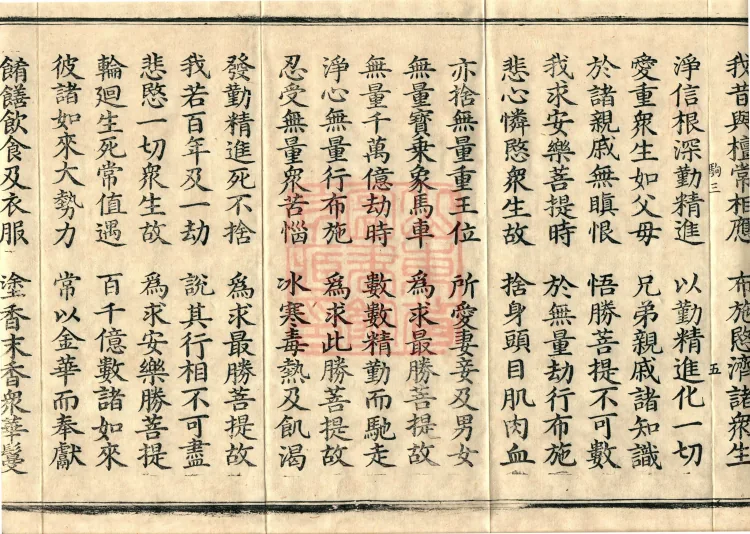 我昔與檀常相應 布施愍濟諸衆生
淨信根深勤精進 以勤精進化一切
駒三 五
愛重衆生如父母 兄弟親戚諸知識
於諸親戚無瞋恨 悟勝菩提不可數
我求安樂菩提時 於無量劫行布施
悲心憐愍衆生故 捨身頭目肌肉血
亦捨無量重王位 所愛妻妾及男女
無量寶乗象馬車 爲求最勝菩提故
無量千萬億劫時 數數精勤而馳走
淨心無量行布施 爲求此勝菩提故
忍受無量衆苦惱 冰寒毒熱及飢渴
發勤精進死不捨 爲求最勝菩提故
我若百年及一劫 說其行相不可盡
悲愍一切衆生故 爲求安樂勝菩提
輪廻生死常值遇 百千億數諸如來
彼諸如來大勢力 常以金華而奉獻
餚饍飲食及衣服 塗香末香衆華鬘